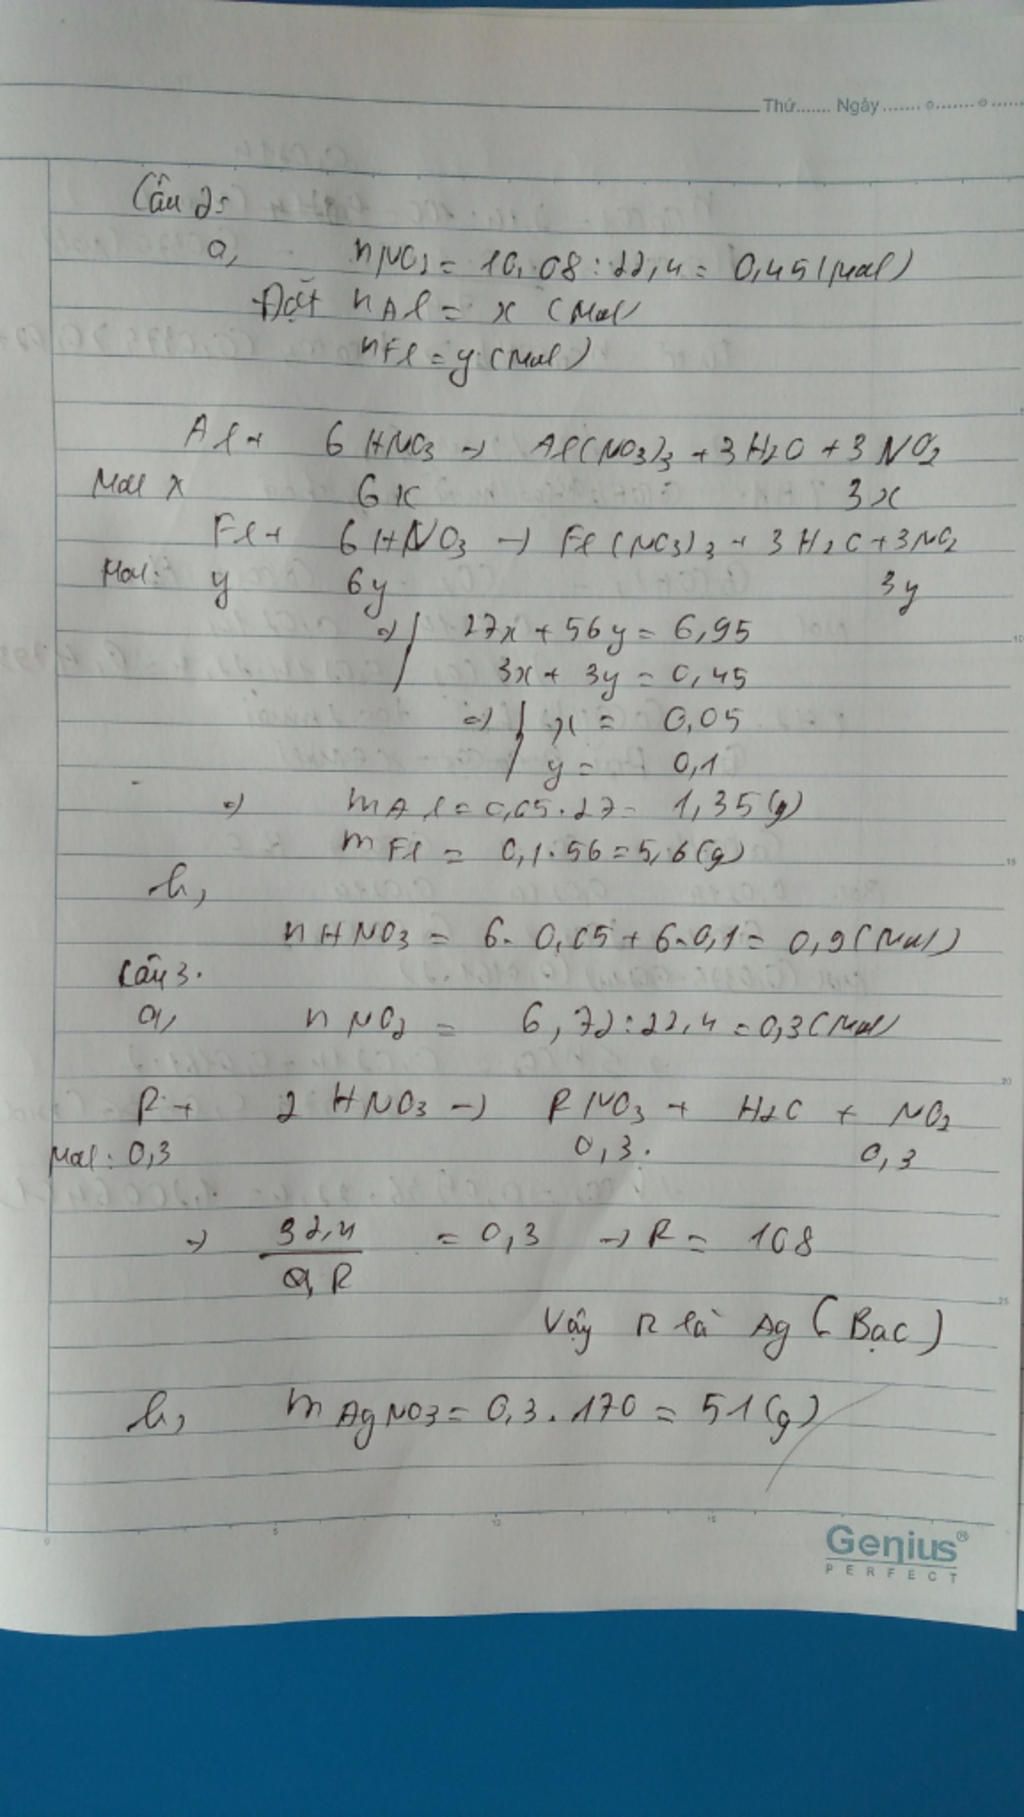 Thứ....... Ngày .......
Câu 2:
a, nNO2 = 10,08 : 22,4 = 0,45 (mol)
Đặt nAl = x (mol)
nFe = y (mol)
Al + 6 HNO3 → Al(NO3)3 + 3 H2O + 3 NO2
Mol x 6x 3x
Fe + 6 HNO3 → Fe(NO3)3 + 3 H2O + 3 NO2
Mol: y 6y 3y
=> 27x + 56y = 6,95
3x + 3y = 0,45
=> x = 0,05
y = 0,1
=> mAl = 0,05.27 = 1,35 (g)
mFe = 0,1.56 = 5,6 (g)
b,
nHNO3 = 6.0,05 + 6.0,1 = 0,9 (mol)
Câu 3.
a, nNO2 = 6,72 : 22,4 = 0,3 (mol)
R + 2 HNO3 → RNO3 + H2O + NO2
Mol: 0,3 0,3. 0,3
→ 32,4
= 0,3 → R = 108
R
Vậy R là Ag (Bạc)
b, mAgNO3 = 0,3.170 = 51 (g)
Genius®
PERFECT